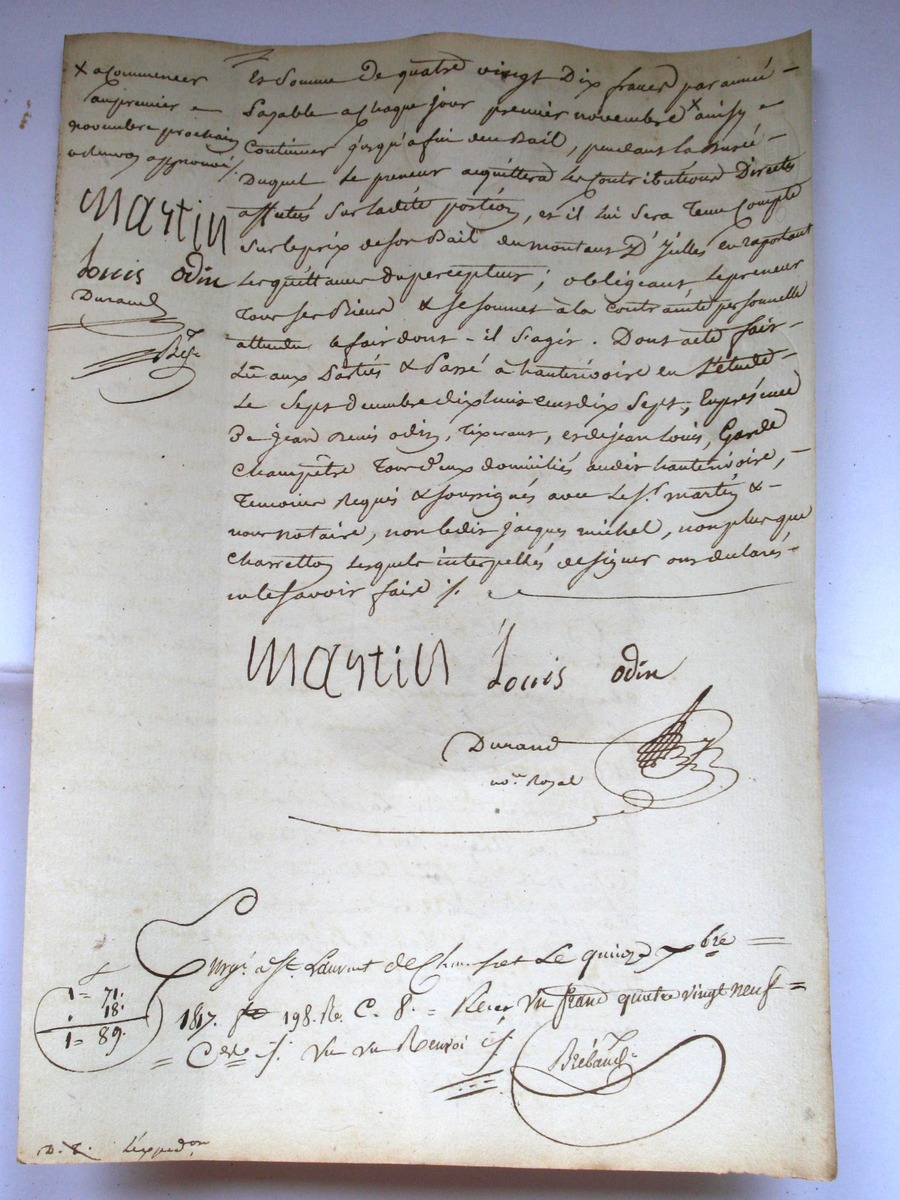 x a Commencer
au premier
novembre prochain
Martin
Louis odin
Durand
Reg.
et Somme de quatre vingt Dix francs par année
Payable a Chaque jour premier novembre x ainsy
Continuer jusqu'a fin du Bail, pendant la Durée
Duquel Le preneur aquittera Les Contributions Directes
affectés Sur ladite portion, et il lui Sera Tenu Compte
Sur le prix de son Bail du montant D'Ycelles en raportant
Les quittances du percepteur; obligeant Le preneur
Tous Ses Biens & Se Soumet à la Contrainte personnelle
attendu le fait dont il S'agit. Dont acte fait
Lu aux Parties & Passé à hauterivoire en L'etude
Le Sept decembre dix huit cent dix Sept, En présence
De jean Denis odin, Tixerant, et de jean Louis, Garde
Champêtre Tous d'eux domiciliés audit hauterivoire,
Temoins Requis & soussignés avec Le Sr. martin &
nous notaire, non ledit jacques michel, non plus que
Charretton Lesquels interpellés de signer ont declarés
ne le Savoir faire ./.
Martin Louis odin
Durand
nore. Royal
Enrgé. a St. Laurent de Chamousset Le quinze xbre
1817. fo 198. Ro. C. 8. Recu Un franc quatre vingt neuf
Cmes ./. Vu un Renvoi ./.
Brébaud
1= 71.
. 18.
1= 89.
D. L. L'expedon